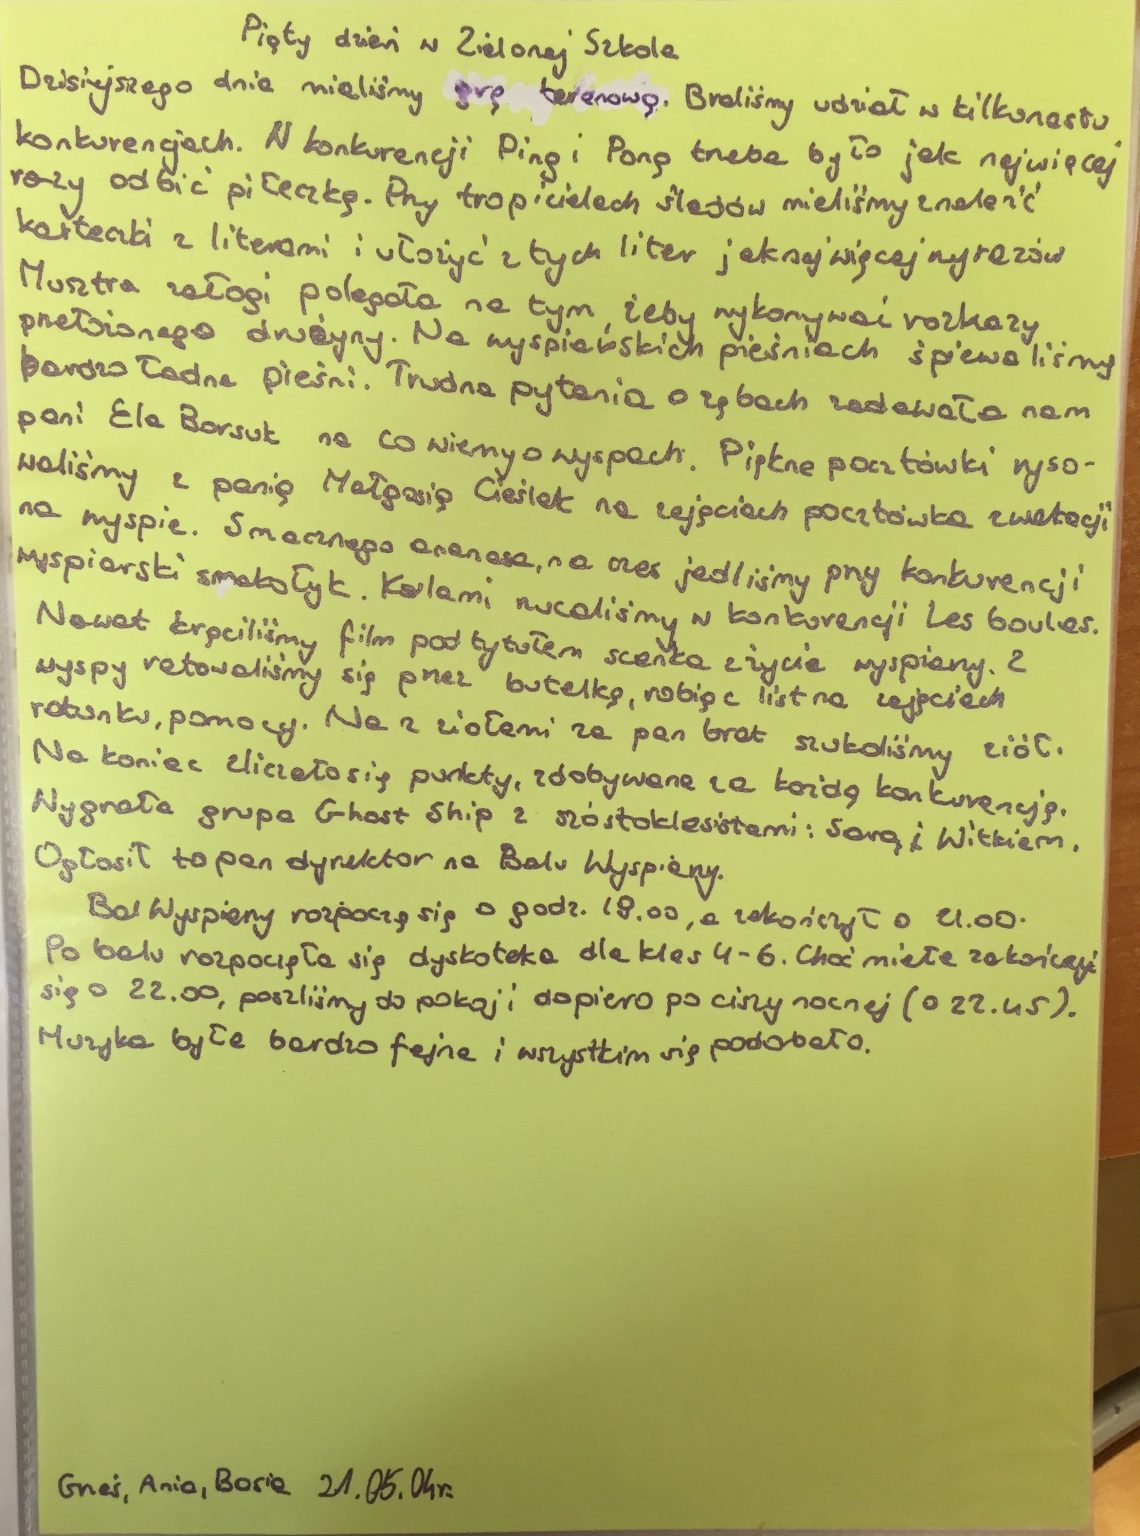 Piąty dzień w Zielonej Szkole
Dzisiejszego dnia mieliśmy grę terenową. Braliśmy udział w kilkunastu
konkurencjach. W konkurencji Ping i Pong trzeba było jak najwięcej
razy odbić piłeczkę. Przy tropicielach śladów mieliśmy znaleźć
karteczki z literami i ułożyć z tych liter jak najwięcej wyrazów
Musztra załogi polegała na tym, żeby wykonywać rozkazy
przełożonego drużyny. Na wyspiarskich pieśniach śpiewaliśmy
bardzo ładne pieśni. Trudne pytania o zębach zadawała nam
pani Ela Borsuk na co wiemy o wyspach. Piękne pocztówki ryso-
waliśmy z panią Małgosią Cieślak na zajęciach pocztówka z wakacji
na wyspie. Smacznego ananasa, na czas jedliśmy przy konkurencji
wyspiarski smakołyk. Kulami rzucaliśmy w konkurencji Les boules.
Nawet kręciliśmy film pod tytułem scenka z życia wyspiarzy. Z
wyspy ratowaliśmy się przez butelkę, robiąc list na zajęciach
ratunku, pomocy. Na z ziołami za pan brat szukaliśmy ziół.
Na koniec zliczało się punkty, zdobywane za każdą konkurencję.
Wygrała grupa Ghost Ship z szóstoklasistami: Sarą i Witkiem.
Ogłosił to pan dyrektor na Balu Wyspiarzy.
Bal Wyspiarzy rozpoczą się o godz. 19.00, a zakończył o 21.00.
Po balu rozpoczęła się dyskoteka dla klas 4-6. Choć miała zakończyć
się o 22.00, poszliśmy do pokoj i dopiero po ciszy nocnej (o 22.45).
Muzyka była bardzo fajna i wszystkim się podobała.
Grześ, Ania, Basia 21.05.04r.